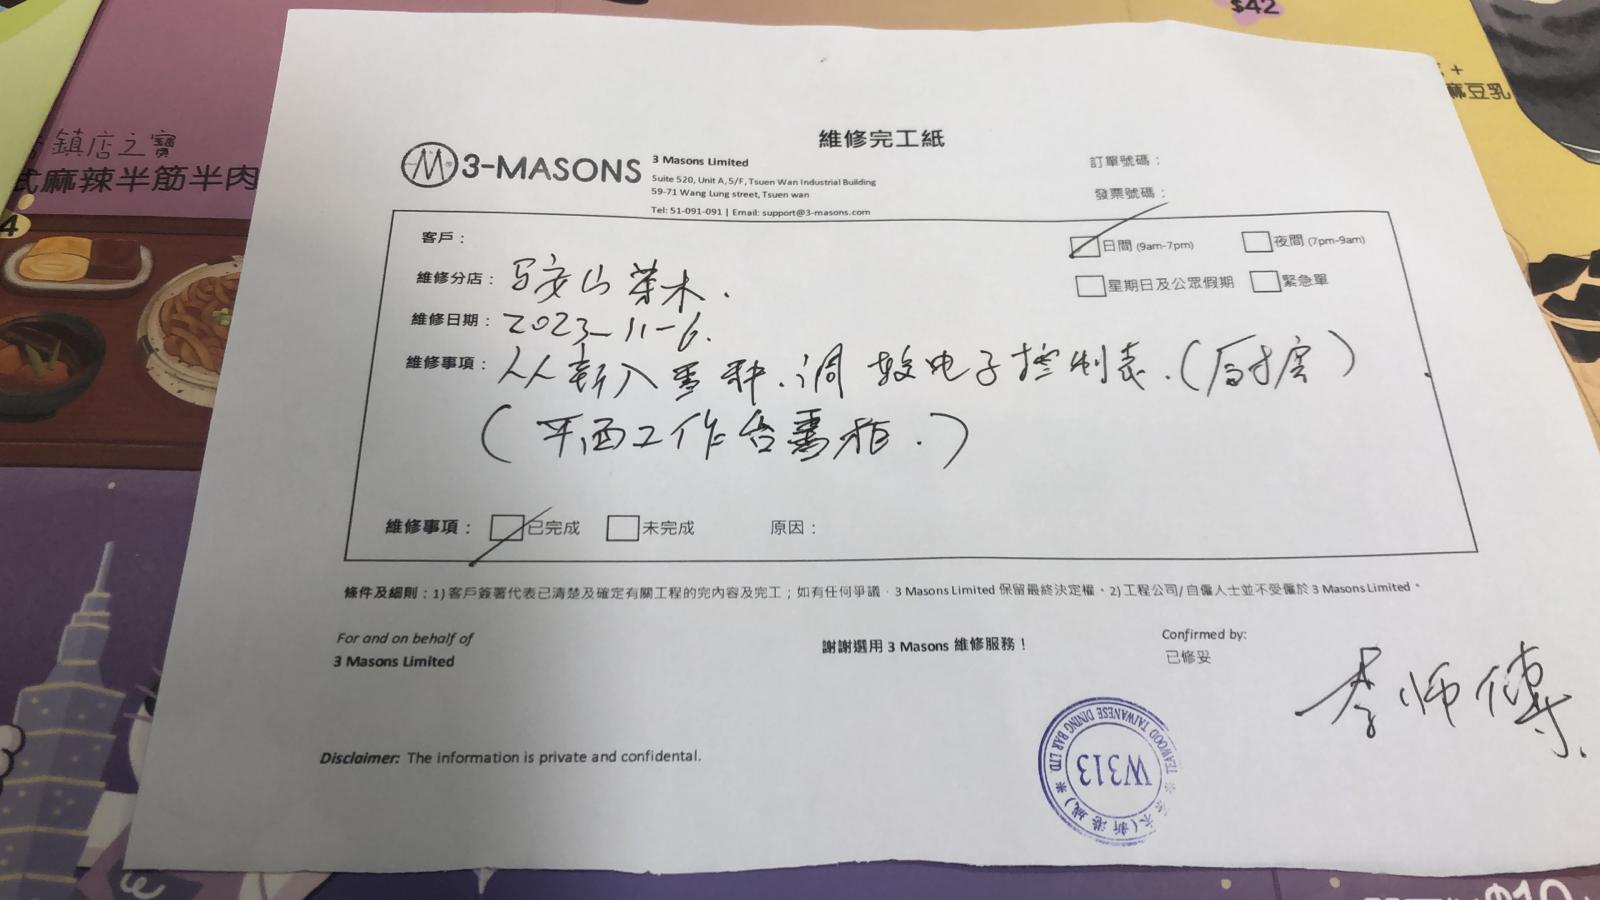 $42
+
麻豆乳
鎮店之寶
式麻辣半筋半肉
4
維修完工紙
3-MASONS
3 Masons Limited
Suite 520, Unit A, 5/F, Tsuen Wan Industrial Building
59-71 Wang Lung street, Tsuen wan
Tel: 51-091-091 | Email: support@3-masons.com
訂單號碼：
發票號碼：
客戶：
日間 (9am-7pm) 夜間 (7pm-9am)
維修分店：马安山茶木.
星期日及公眾假期 緊急單
維修日期：2023-11-6.
維修事項：从新入雪种.调較电子控制表.(厨房)
(平面工作台雪柜.)
維修事項： 已完成 未完成 原因：
條件及細則：1) 客戶簽署代表已清楚及確定有關工程的完內容及完工；如有任何爭議，3 Masons Limited 保留最終決定權。2) 工程公司/自僱人士並不受僱於 3 Masons Limited。
For and on behalf of
3 Masons Limited
謝謝選用 3 Masons 維修服務！
Confirmed by:
已修妥
李师傅.
TEAWOOD TAIWANESE DINING BAR LTD.
W313
茶木(新港城)
Disclaimer: The information is private and confidental.